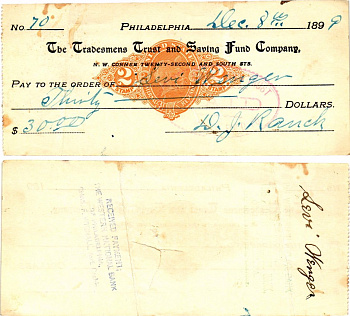 No. 70 Philadelphia, Dec. 8th 1899
The Tradesmens Trust and Saving Fund Company,
N. W. CORNER TWENTY-SECOND AND SOUTH STS.
Pay to the order of Levi Wenger
Thirty Dollars.
$ 30.00 D. J. Ranck
RECEIVED PAYMENT,
NATIONAL BANK
Levi Wenger